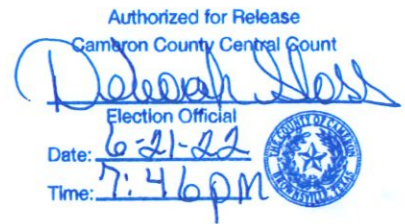 Authorized for Release
Cameron County Central Count
Deborah
Election Official
Date: 6-21-22
Time: 7:46pm
THE COUNTY OF CAMERON
BROWNSVILLE, TEXAS